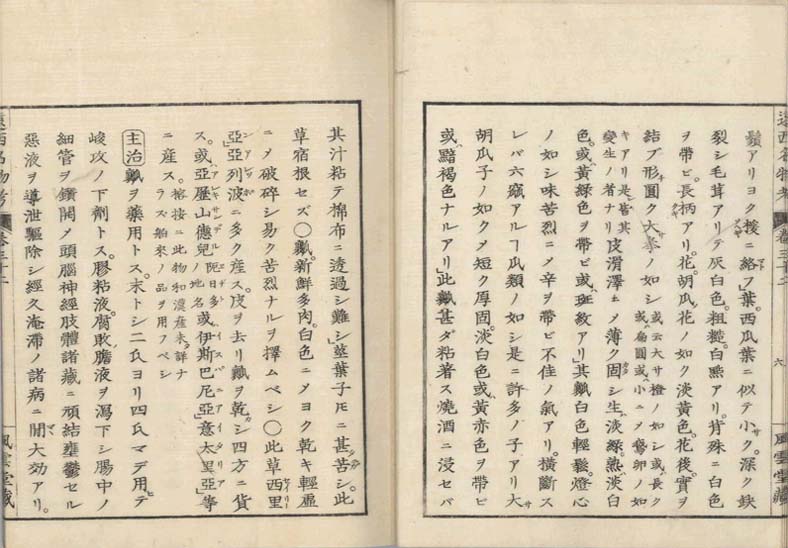 遠西名物考 卷三十二 六 風雲堂藏
鬚アリヨク梭ニ絡フ」葉。西瓜葉ニ似テ小ク。深ク鈌
裂シ毛茸アリテ灰白色。粗糙。白㸃アリ。背殊ニ白色
ヲ帶ビ。長柄アリ。花。胡瓜花ノ如ク淡黄色。花後。實ヲ
結ブ形圓ク大サ柰ノ如シ
或云大サ橙ノ如シ或長ク
或扁圓或小ニメ鵞卵ノ如
キアリ是皆其
變生ノ者ナリ
皮滑澤ニメ薄ク固シ生淡緑。熟淡白
色。或黄緑色ヲ帶ビ或斑紋アリ」其瓤白色輕鬆。燈心
ノ如シ味苦烈ニメ辛ヲ帶ビ不佳ノ氣アリ。横斷ス
レバ六竅アルヿ瓜類ノ如シ是ニ許多ノ子アリ大サ
胡瓜子ノ如クメ短ク厚固。淡白色或黄赤色ヲ帶ビ
或黯褐色ナルアリ」此瓤甚ダ粘着ス燒酒ニ浸セバ
其汁粘テ棉布ニ透過シ難シ」莖葉子𪜈ニ甚苦シ。此
草宿根セズ〇瓤。新鮮多肉。白色ニメヨク乾キ輕虚
ニメ破碎シ易ク苦烈ナルヲ擇ムベシ〇此草西里
亞亞列波ニ多ク産ス。皮ヲ去リ瓤ヲ乾シ四方ニ貨
ス。或亞歴山德兒
阨日多ノ地名
或伊斯巴尼亞」意太里亞」等
ニ産ス。
榕按ニ此物和漢産未ダ詳ナ
ラズ舶來ノ品ヲ用フベシ
主治 瓤ヲ藥用トス。末トシ二氏ヨリ四氏マデ用テ
峻攻ノ下劑トス。膠粘液。腐敗膽液ヲ瀉下シ腸中ノ
細管ヲ鑚開メ頭腦神經肢體諸藏ニ頑結壅鬱セル
惡液ヲ導泄驅除シ經久淹滯ノ諸病ニ間大効アリ。
遠西名物考 卷三十二 風雲堂藏